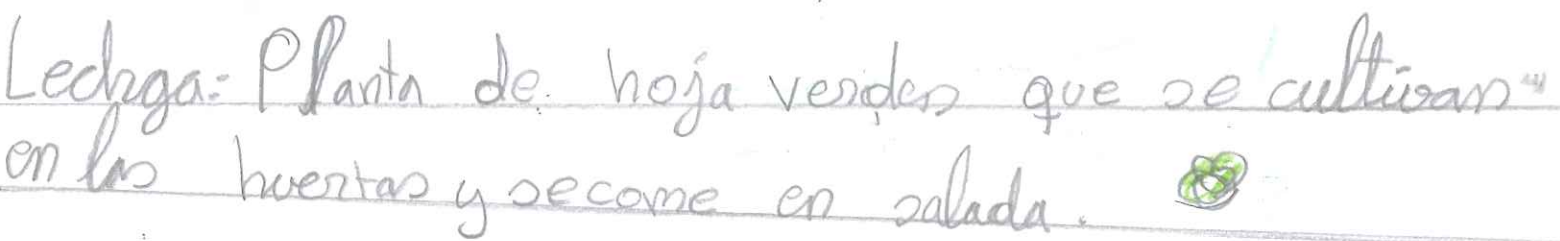 Lechga: Planta de hoja verdes que se cultivan
en las huertas y se come en salada.